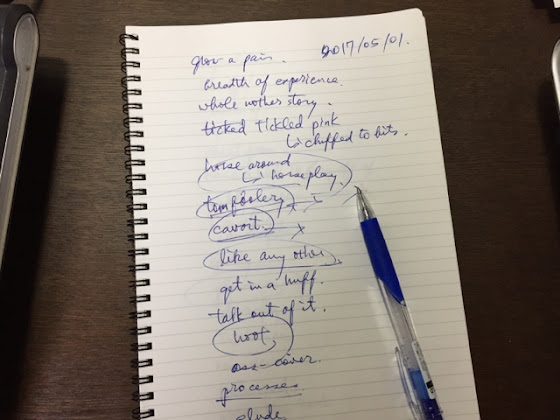 grow a pair. 2017/05/01.
breadth of experience.
whole nother story.
ticked tickled pink
↳ chuffed to bits.
horse around
↳ horseplay.
tomfoolery
cavort.
like any other.
get in a huff.
talk out of it.
hoot.
ass-cover.
processes
elude